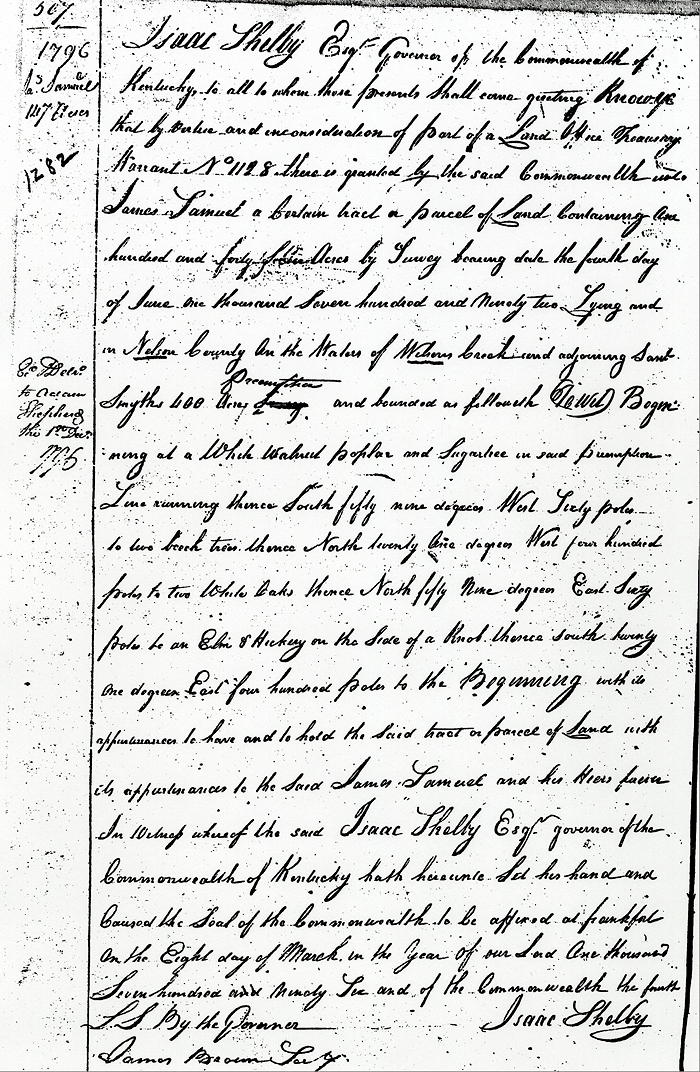 507
1796
Js. Samuel
147 Acres
1282
Isaac Shelby Esqr. Governor of the Commonwealth of
Kentucky, to all to whom these presents Shall come greeting Know ye
that by virtue and inconsideration of part of a Land Office Treasury
Warrant No 1128 there is granted by the said Commonwealth unto
James Samuel a Certain tract or parcel of Land Containing One
hundred and forty Acres by Survey bearing date the fourth day
of June One thousand Seven hundred and Ninety two Lying and
in Nelson County On the Waters of Wilsons Creek and adjoining
Preemption
Smyths 400 Acre and bounded as followeth (Towit) Begin
ning at a White Walnut poplar and Sugartree in said preemption
Line running thence South fifty nine degrees West Sixty poles
to two beech trees thence North twenty One degrees West four hundred
poles to two White Oaks thence North fifty Nine degrees East Sixty
poles to an Elm & Hickory on the Side of a Knob thence south twenty
One degrees East four hundred poles to the Beginning with its
appurtenances to have and to hold the Said tract or parcel of Land with
its appurtenances to the Said James Samuel and his Heirs forever
In Witness whereof the said Isaac Shelby Esqr. governor of the
Commonwealth of Kentucky hath hereunto Set his hand and
Caused the Seal of the Commonwealth to be affixed at frankfort
On the Eight day of March in the Year of our Lord One thousand
Seven hundred and Ninety Six and of the Commonwealth the fourth
L.S By the Governor
Isaac Shelby
James Brown Secy.
Deld.
to Adam
Shepherd
the 1st Decr.
1796